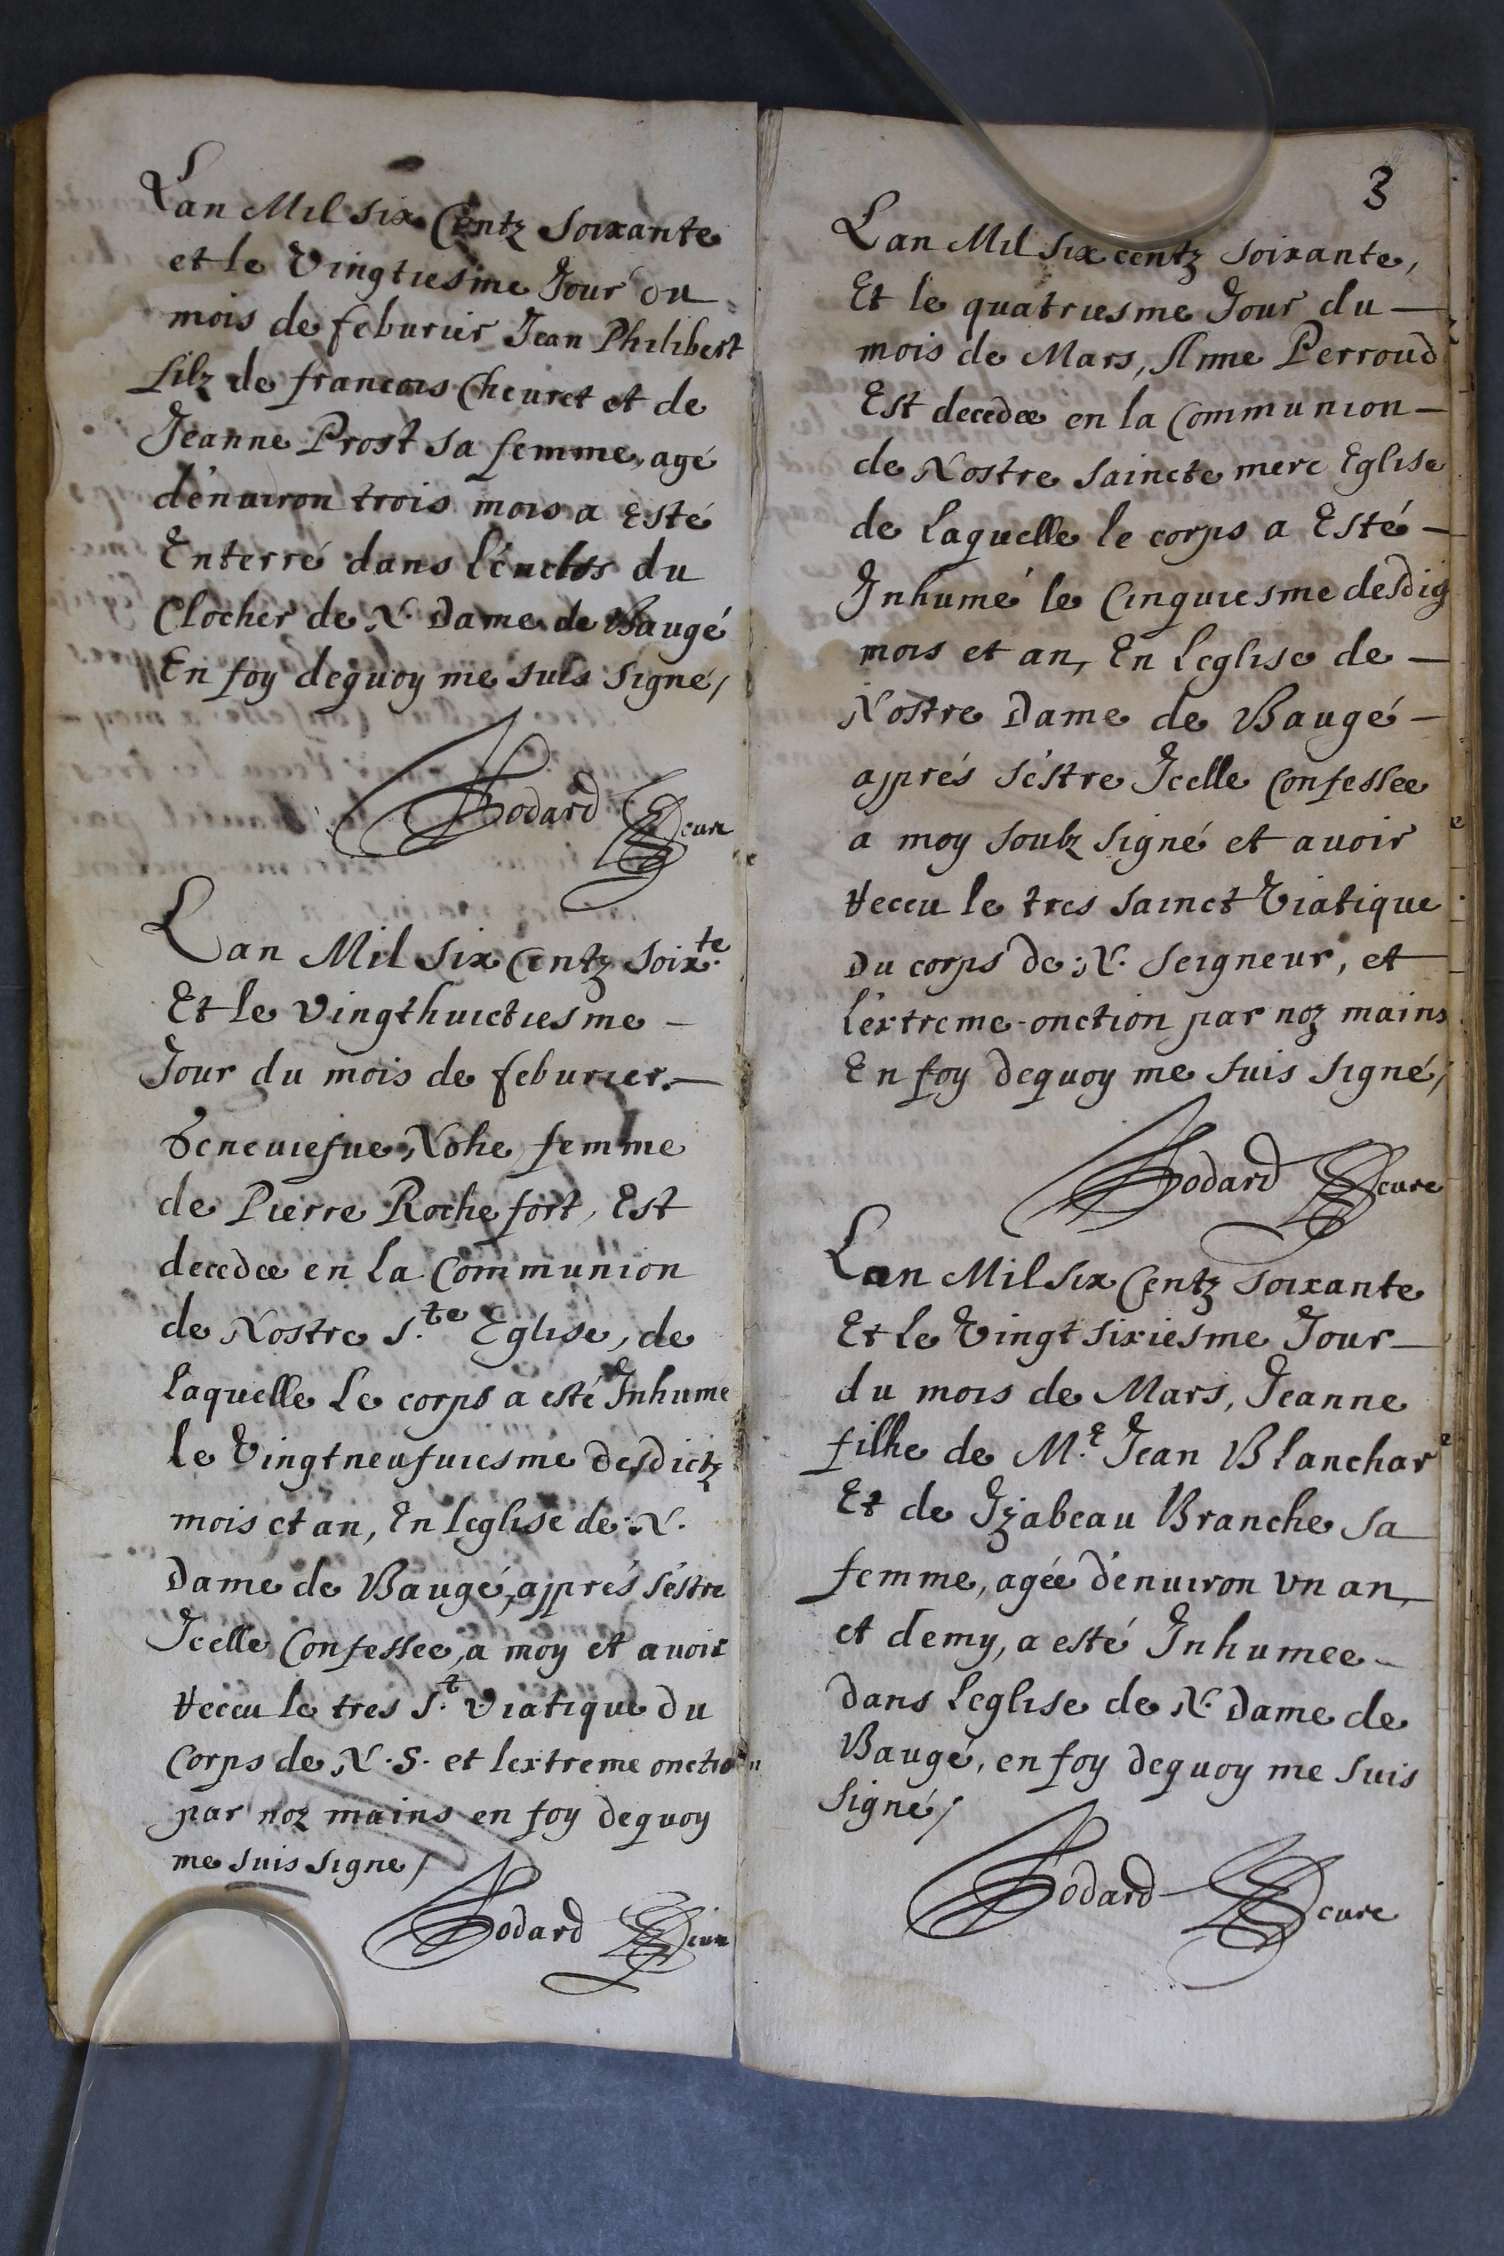 Lan Mil six Centz soixante
et le Vingtiesme Jour du
mois de feburier Jean Philibert
filz de francois Cheuret et de
Jeanne Prost sa femme, agé
d'enuiron trois mois a Esté
Enterré dans l'enclos du
Clocher de N. Dame de Baugé
En foy dequoy me suis signé,
Godard curé
Lan Mil six Centz soix.te
Et le vingthuictiesme -
Jour du mois de feburier. -
Geneuiefue, Nohe femme
de Pierre Rochefort, Est
decedee en la Communion
de Nostre S.te Eglise, de
laquelle Le corps a esté Inhume
le Vingtneufuiesme desdictz
mois et an, En leglise de N.
Dame de Baugé, apprés s'éstre
Icelle Confessee, a moy et avoir
Receu le tres S.t viatique Du
Corps de N. S. et lextreme onction
par noz mains en foy dequoy
me suis signe,
Godard curé
3
Lan Mil six centz soixante,
Et le quatriesme Jour du -
mois de Mars, Anne Perroud
Est decedee en la Communion -
de Nostre saincte mere Eglise
de laquelle le corps a Esté -
Inhumé le Cinquiesme desdig
mois et an, En Leglise de -
Nostre Dame de Baugé -
apprés s'éstre Icelle Confessee
a moy soubz signé et avoir
Receu le tres sainct Viatique
Du corps de N. Seigneur, et
l'extreme-onction par noz mains
En foy dequoy me suis signé,
Godard cure
Lan Mil six Centz soixante
Et le Vingt sixiesme Jour -
du mois de Mars, Jeanne
filhe de M.e Jean Blanchar
Et de Izabeau Branche sa
femme, agée d'enuiron vn an,
et demy, a esté Inhumee -
dans leglise de N. Dame de
Baugé, en foy dequoy me suis
signé,
Godard cure